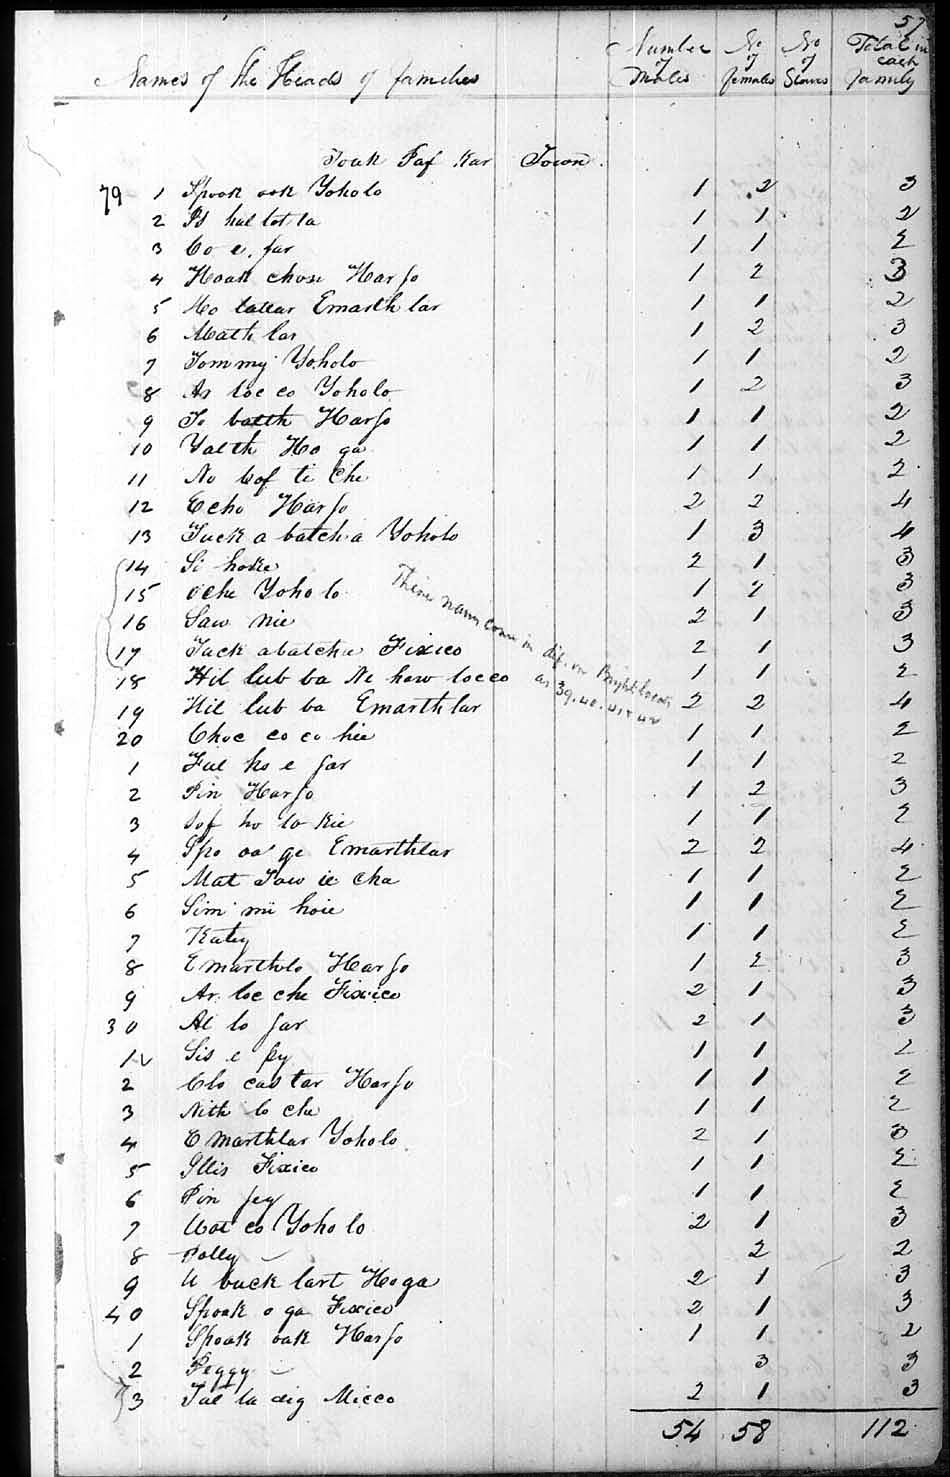 57
Names of the Heads of families Number of Males No of females No of Slaves Total in each family
Touk Paf Kar Town.
79 1 Spook ook Yoholo 1 2 3
2 Is hul tot la 1 1 2
3 Co e. far 1 1 2
4 Hoak chose Harjo 1 2 3
5 No tallar Emarth lar 1 1 2
6 Math lar 1 2 3
7 Tommy Yoholo 1 1 2
8 Ar loc co Yoholo 1 2 3
9 To batth Harjo 1 1 2
10 Yalth Ho ga 1 1 2
11 No cof te Che 1 1 2
12 Echo Harjo 2 2 4
13 Tuck a batch a Yoholo 1 3 4
14 Si hoke 2 1 3
15 oche Yoho lo 1 2 3
16 Saw nie 2 1 3
17 Tuck abatche Fixico 2 1 3
18 Hil lub ba Ne haw locco 1 1 2
19 Hil lub ba Emarth lar 2 2 4
These names come in dif. on
as 39. 40. 41 + 42
20 Choc co co hee 1 1 2
1 Ful ho e gar 1 1 2
2 Pin Harjo 1 2 3
3 Sof ho lo kie 1 1 2
4 Spo oa ge Emarthlar 2 2 4
5 Mat Taw ie cha 1 1 2
6 Sim mi hoie 1 1 2
7 Katey 1 1 2
8 Emarthlo Harjo 1 2 3
9 Ar loc che Fixico 2 1 3
30 Al lo gar 2 1 3
1 Sis e py 1 1 2
2 Clo cas tar Harjo 1 1 2
3 Nith lo che 1 1 2
4 Emarthlar Yoholo 2 1 3
5 Illis Fixico 1 1 2
6 Pin jey 1 1 2
7 Wot co Yoho lo 2 1 3
8 Polly 2 2
9 U buck lart Hoga 2 1 3
40 Spoak o ga Fixico 2 1 3
1 Spoak oak Harjo 1 1 2
2 Peggy 3 3
3 Tul la dig Micco 2 1 3
54 58 112